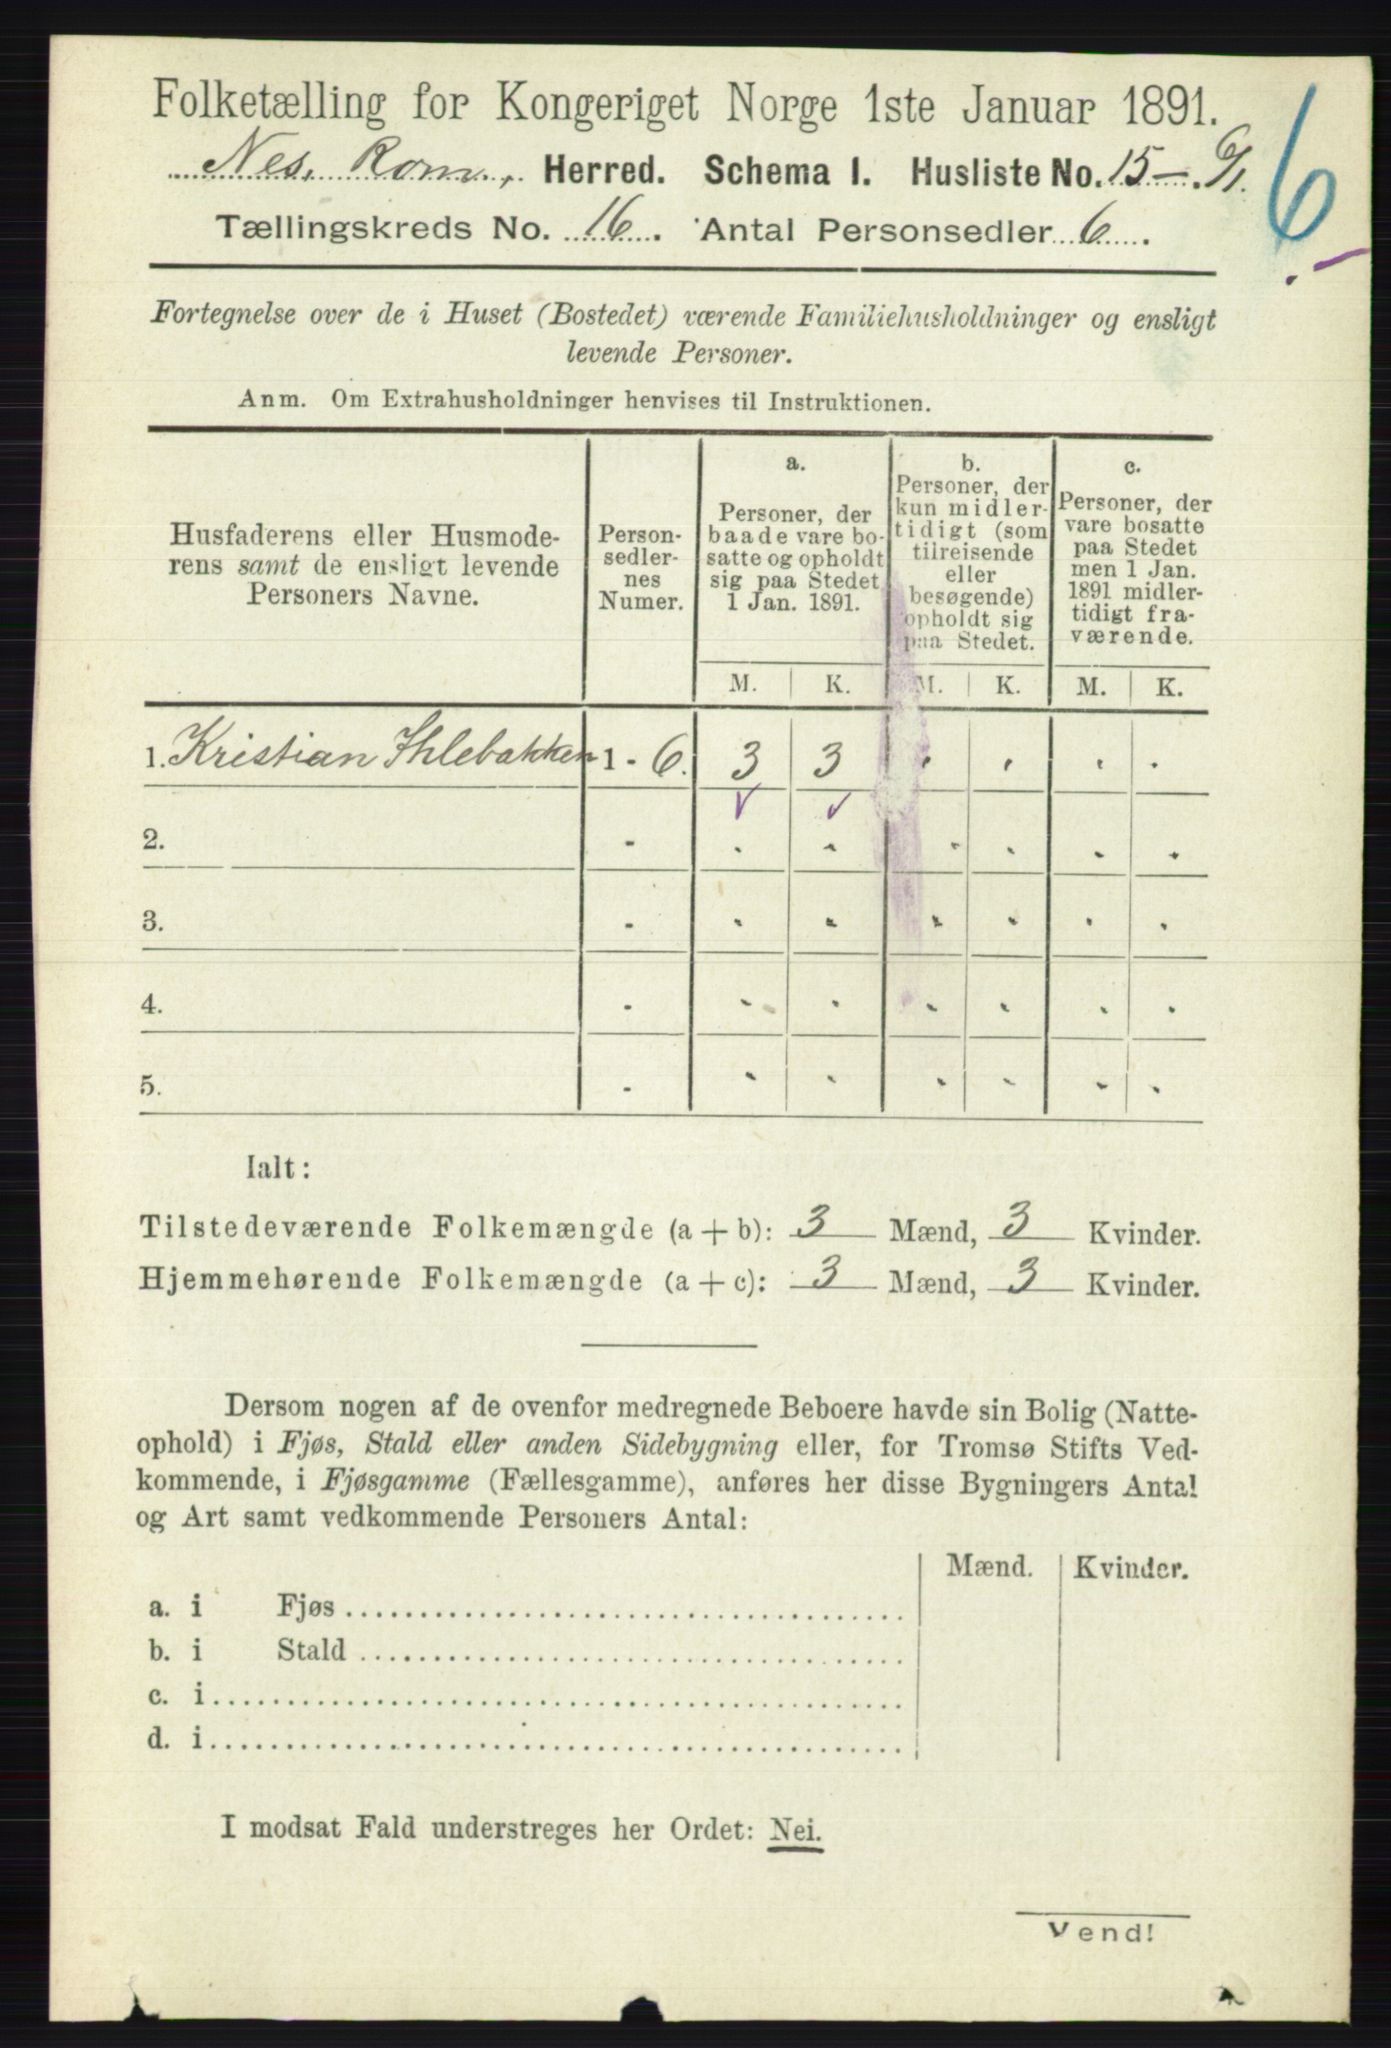 Folketælling for Kongeriget Norge 1ste Januar 1891.
Nes, Rom., Herred. Schema I. Husliste No. 15 —
Tællingskreds No. 16. Antal Personsedler 6.
6
Fortegnelse over de i Huset (Bostedet) værende Familiehusholdninger og ensligt
levende Personer.
Anm. Om Extrahusholdninger henvises til Instruktionen.
Husfaderens eller Husmode-
rens samt de ensligt levende
Personers Navne.
Person-
sedler-
nes
Numer.
a.
Personer, der
baade vare bo-
satte og opholdt
sig paa Stedet
1 Jan. 1891.
b.
Personer, der
kun midler-
tidigt (som
tilreisende
eller
besøgende)
opholdt sig
paa Stedet.
c.
Personer, der
vare bosatte
paa Stedet
men 1 Jan.
1891 midler-
tidigt fra-
værende.
M. K. M. K. M. K.
1. Kristian Ihlebakken 1 - 6. 3 3
2. -
3. -
4. -
5. -
Ialt:
Tilstedeværende Folkemængde (a + b): 3 Mænd, 3 Kvinder.
Hjemmehørende Folkemængde (a + c): 3 Mænd, 3 Kvinder.
Dersom nogen af de ovenfor medregnede Beboere havde sin Bolig (Natte-
ophold) i Fjøs, Stald eller anden Sidebygning eller, for Tromsø Stifts Ved-
kommende, i Fjøsgamme (Fællesgamme), anføres her disse Bygningers Antal
og Art samt vedkommende Personers Antal:
Mænd. Kvinder.
a. i Fjøs
b. i Stald
c. i
d. i
I modsat Fald understreges her Ordet: Nei.
Vend!